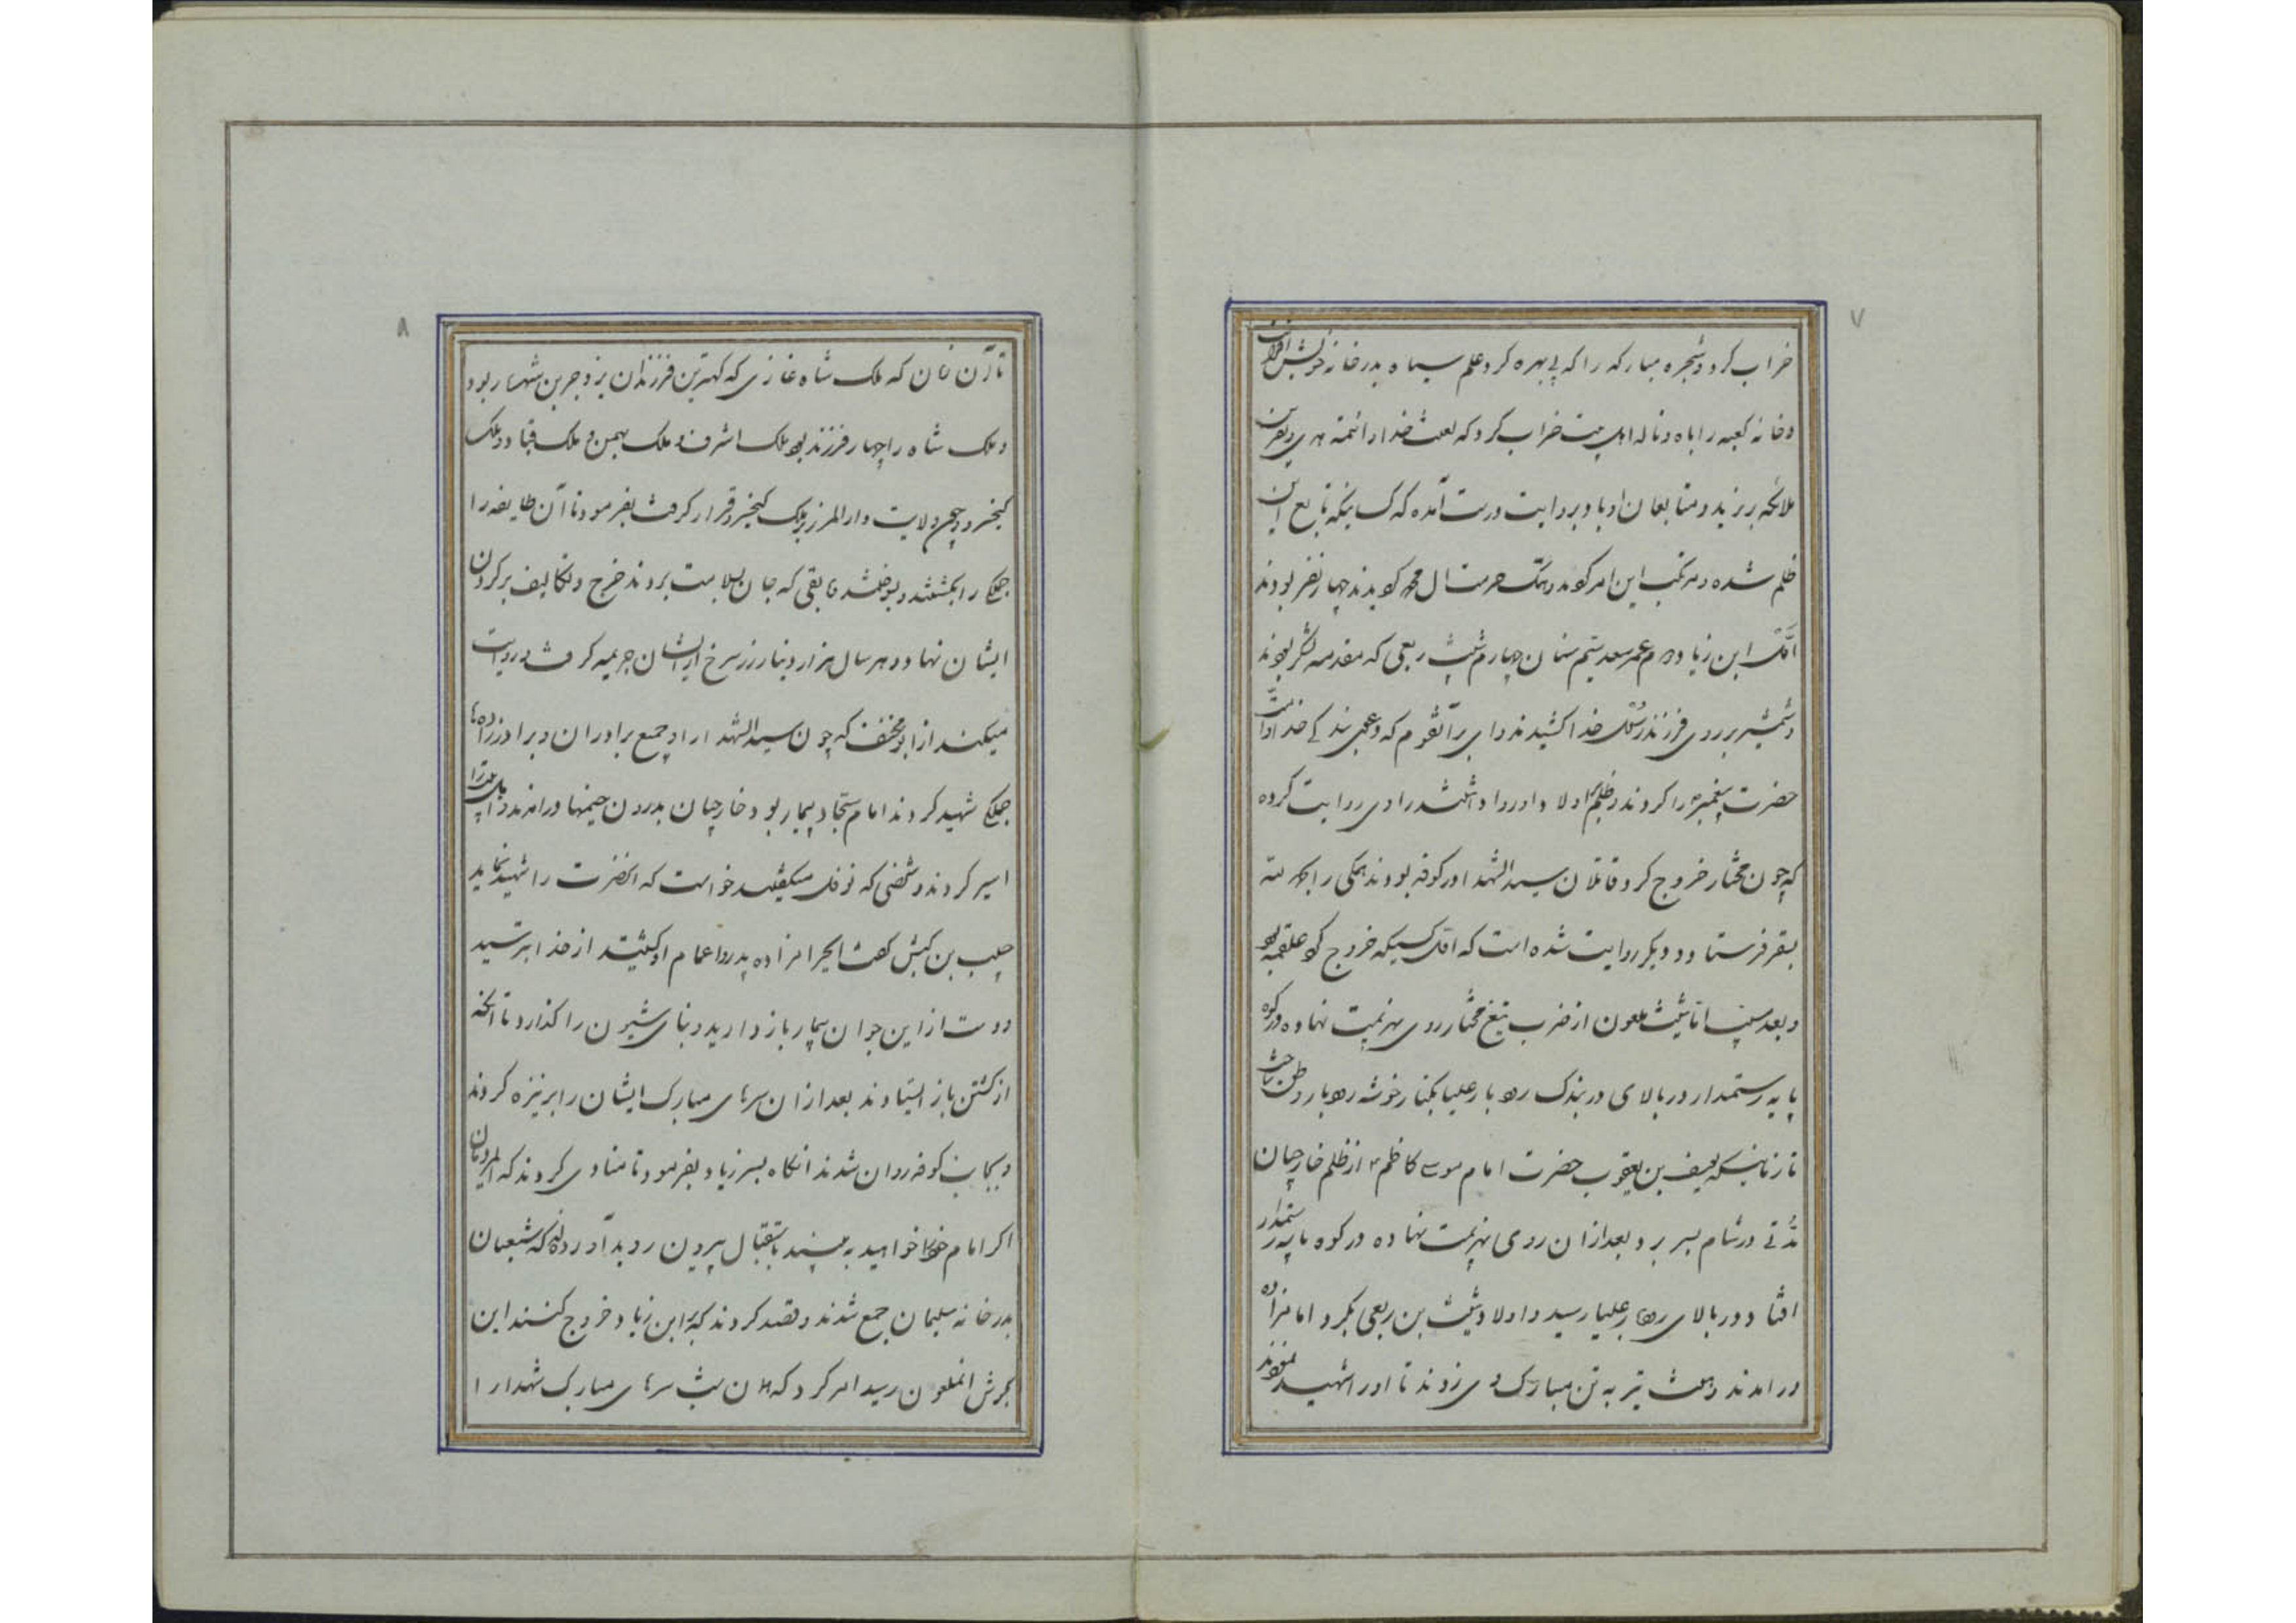 ۷
خراب کرد و شجره مبارکه را که بی بهره کرد و علم سیاه بدر خانه خویش
و خانه کعبه را باه و ناله اهل بیت خراب کرد که لعنت خدا و ائمه هدی و نفرین
ملائکه بر یزید و متابعان او باد و بروایت درست آمده که کسانیکه تابع این
ظلم شده و مرتکب این امر و هتک حرمت ال محمد چهار نفر بودند
اوّل ابن زیاد دوم عمر سعد سیّم سنان چهارم شیث ربعی که مقدمه لشکر بودند
و شمشیر بر روی فرزند رسول خدا کشیدند وای بر آنقوم که دعوی بندگی خدا و امّت
حضرت پیغمبر را کردند و ظلم بر اولاد او روا داشتند راوی روایت کرده
که چون مختار خروج کرد و قاتلان سید الشهدا در کوفه بودند همگی را
بسقر فرستاد و دیگر روایت شده است که اوّل کسیکه خروج کرد علقمه بود
و بعد مسیب تا شیث ملعون از ضرب تیغ مختار روی بهزیمت نهاده در کوه
پایه رستمدار در بالای دربندک رودبار علیا بکنار خوشه رودبار وطن ساخت
تا زمانیکه یوسف بن یعقوب حضرت امام موسی کاظم از ظلم خارجیان
مدّتی در شام بسر برد بعد از ان روی بهزیمت نهاده در کوه پایه رستمدار
افتاد و در بالای رودبار علیا رسید و اولاد شیث بن ربعی بگرد امامزاده
در امدند و هشت تیر به تن مبارک وی زدند تا او را شهید نمودند
۸
تا آن زمان که ملک شاه غازی که کهترین فرزندان یزدجر بن شهریار بود
و ملک شاه را چهار فرزند بود ملک اشرف و ملک بهمن و ملک قباد و ملک
کیخسرو و چون ولایت دار المرز بر ملک کیخسرو قرار گرفت بفرمود تا آن طایفه را
جملگی را بکشتند و بعضی که جان بسلامت بردند خرج و تکالیف بر گردن
ایشان نهاد و هر سال هزار دینار زر سرخ از ایشان جریمه گرفت و روایت
میکنند از ابو مخنف که چون سید الشهدا را و جمع برادران و برادر زاده ها
جملگی شهید کردند امام سجّاد بیمار بود خارجیان بدرون خیمها درامدند
اسیر کردند و شخصی که نوفل میگفتند خواست که انحضرت را شهید نماید
حلب بن کبش گفت ایحرامزاده پدر و اعمام او کشتید از خدا بترسید
دست از این جوان بیمار باز دارید دنیای شیرین را گذارد تا آنکه
از کشتن باز ایستادند بعد از ان سرهای مبارک ایشان را بر نیزه کردند
و بجانب کوفه روان شدند انگاه پسر زیاد بفرمود تا منادی کردند که
اگر امام خود را خواهید به بینید باستقبال بیرون روید آورده اند که شیعیان
بدر خانه سلیمان جمع شدند و قصد کردند که بر ابن زیاد خروج کنند این
بگوش انملعون رسید امر کرد که همان شب سرهای مبارک شهدا را